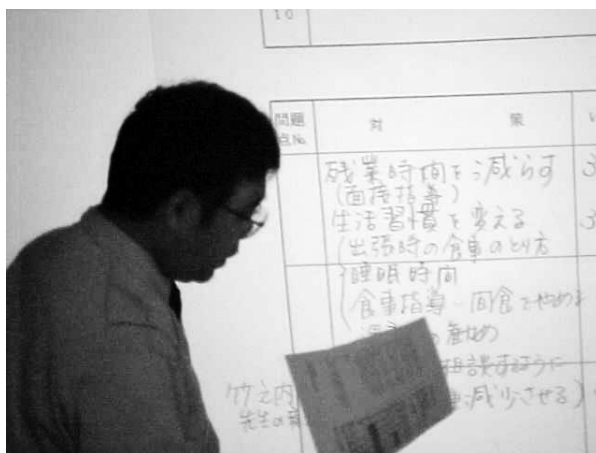 10
問題 対 策
点No.
残業時間を減らす 3
(面接指導)
生活習慣を変える 3
(出張時の食事のとり方
睡眠時間
食事指導・間食をやめる
の勧め
相談するように
竹之内 減少させる)
先生の